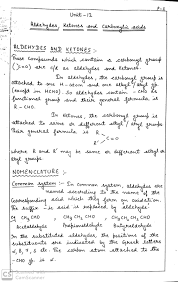 Unit-12
Aldehydes, Ketones and Carboxylic acids
ALDEHYDES AND KETONES :-
These Compounds which contain a carbonyl group
(>C=O) are c/a as aldehydes and ketones.
In aldehydes, the carbonyl group is
attached to one H-atom and one alkyl / aryl gp
(except in HCHO), so aldehydes contain -CHO as
functional group and their general formula is
R-CHO.
In ketone, the carbonyl group is
attached to same or different alkyl / aryl groups
Their general formula is
R
R' C=O
where R and R' may be same or different alkyl or
aryl groups.
NOMENCLATURE :-
Common system :- In Common system, aldehydes are
named according to the name of the
Corresponding acid which they form on oxidation.
The suffix -ic acid is replaced by aldehyde.
eg CH3CHO CH3CH2CHO CH3CH2CH2CHO
Acetaldehyde Propionaldehyde Butyraldehyde
In the substituted aldehydes, the positions of the
substituents are indicated by the Greek letters
α, β, γ, δ etc. the carbon atom attached to the
-CHO gp. is α.